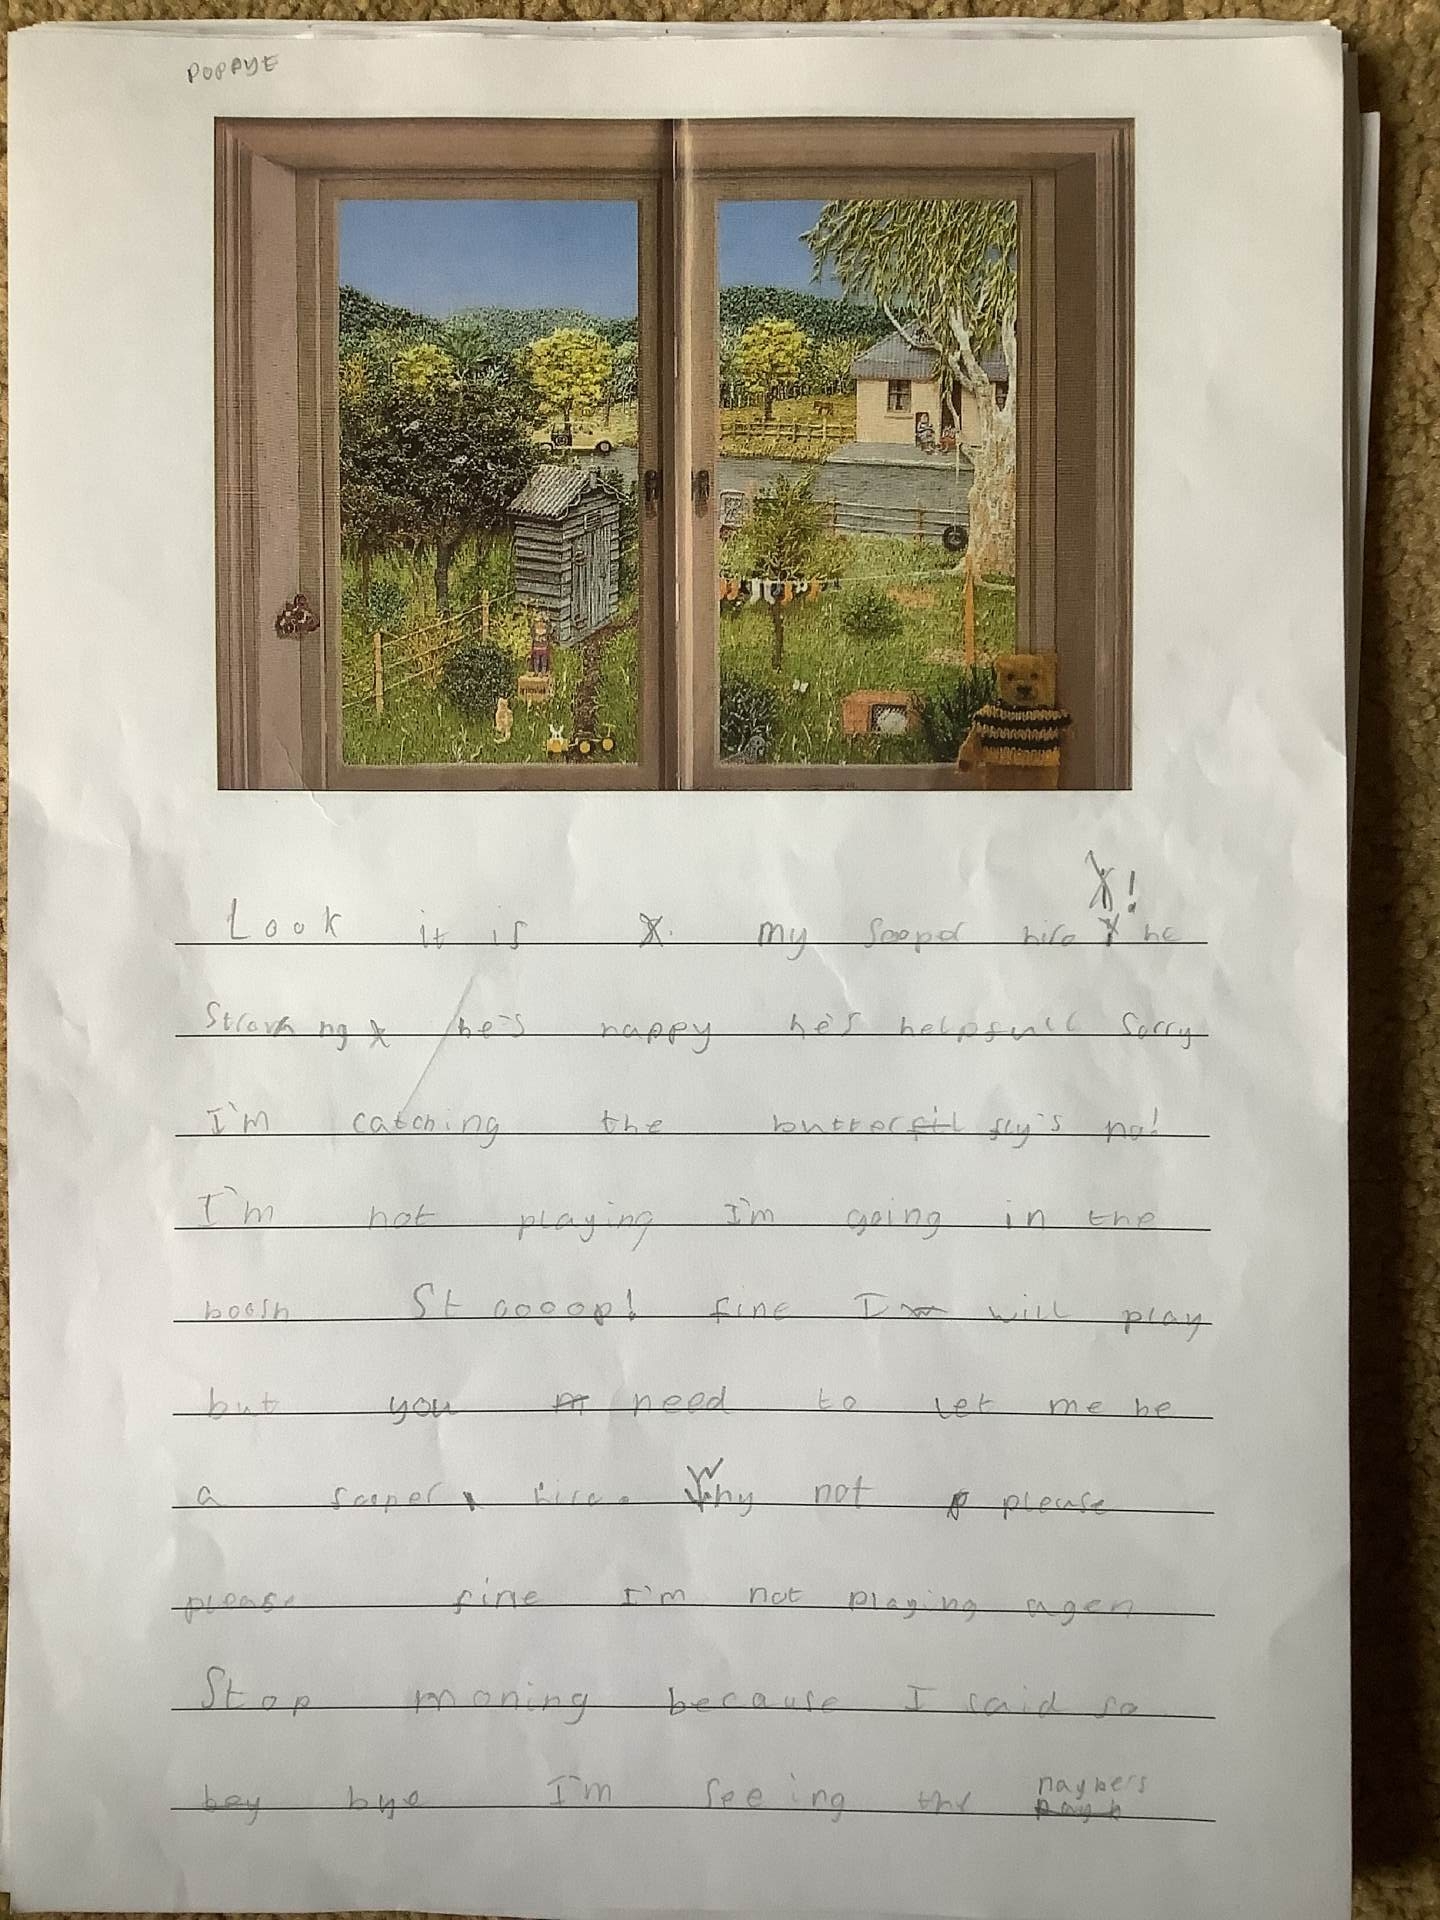 POPPYE
X!
Look it is X. my sooper hiro he
Strong he's happy he's helpfull Sorry
I'm catching the butterfly's no!
I'm not playing I'm going in the
boosh Stoooop! fine I will play
but you need to let me be
a sooper hiro. Why not please
please fine I'm not playing agen
Stop moning because I said so
bey bye I'm seeing the naybers